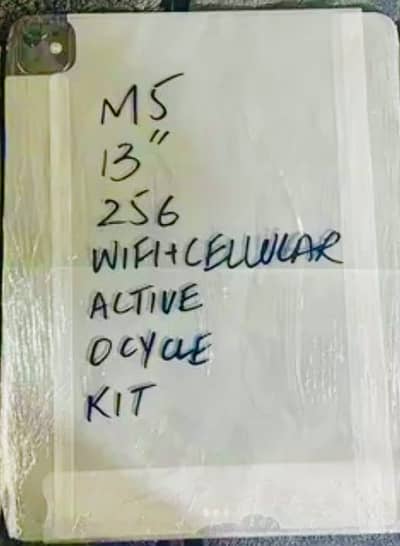 M5
13"
256
WIFI+CELLULAR
ACTIVE
0CYCLE
KIT